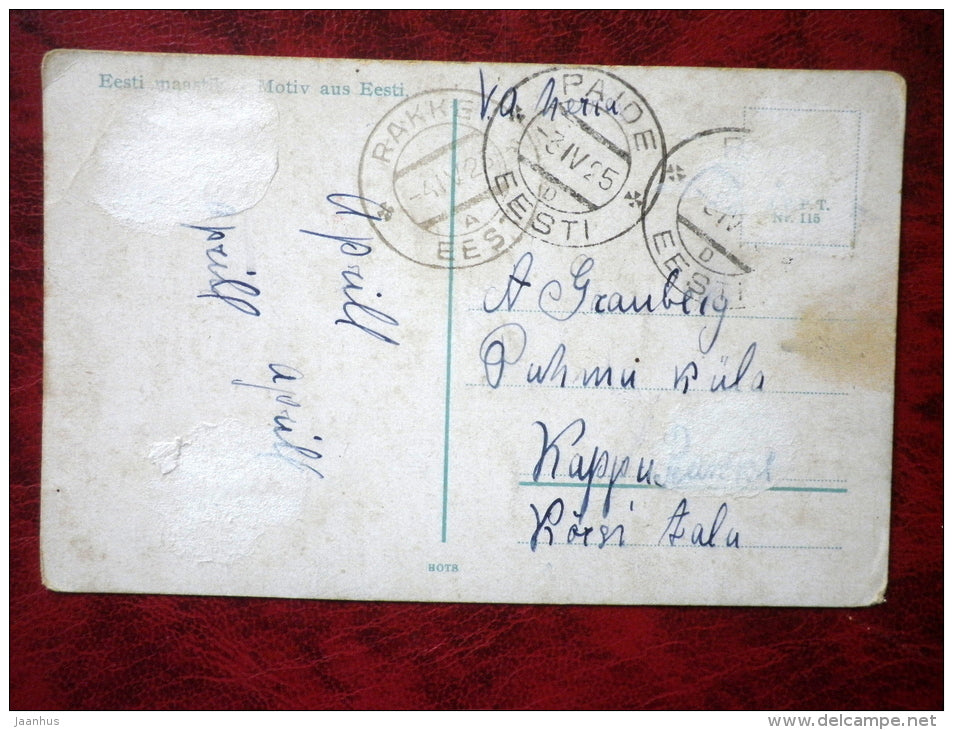 Eesti Motiv aus Eesti.
V.a. herra
RAKKE
-4 IV 2
A
EES
PAIDE
IV 25
D
EESTI
D
EESTI
T.
Nr. 115
April
April
april
A Granberg
Puhmu küla
Kappu
Kõrgi talu
HOTS
Jaanhus
www.delcampe.net